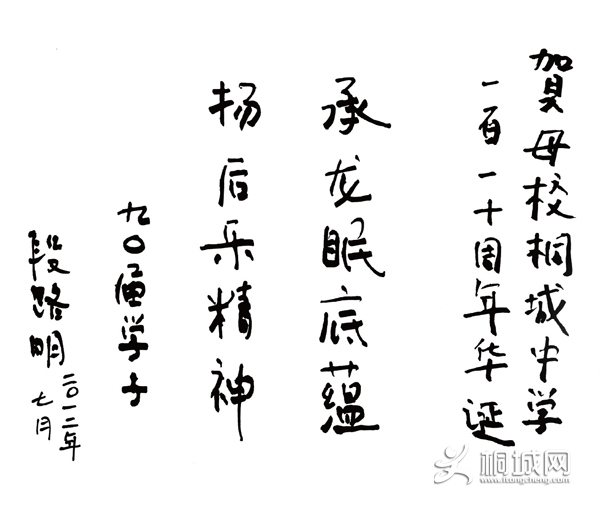 贺母校桐城中学
一百一十周年华诞
承龙眠底蕴
扬后乐精神
九〇届学子
段路明
二〇一二年
七月
桐城网
www.itongcheng.com